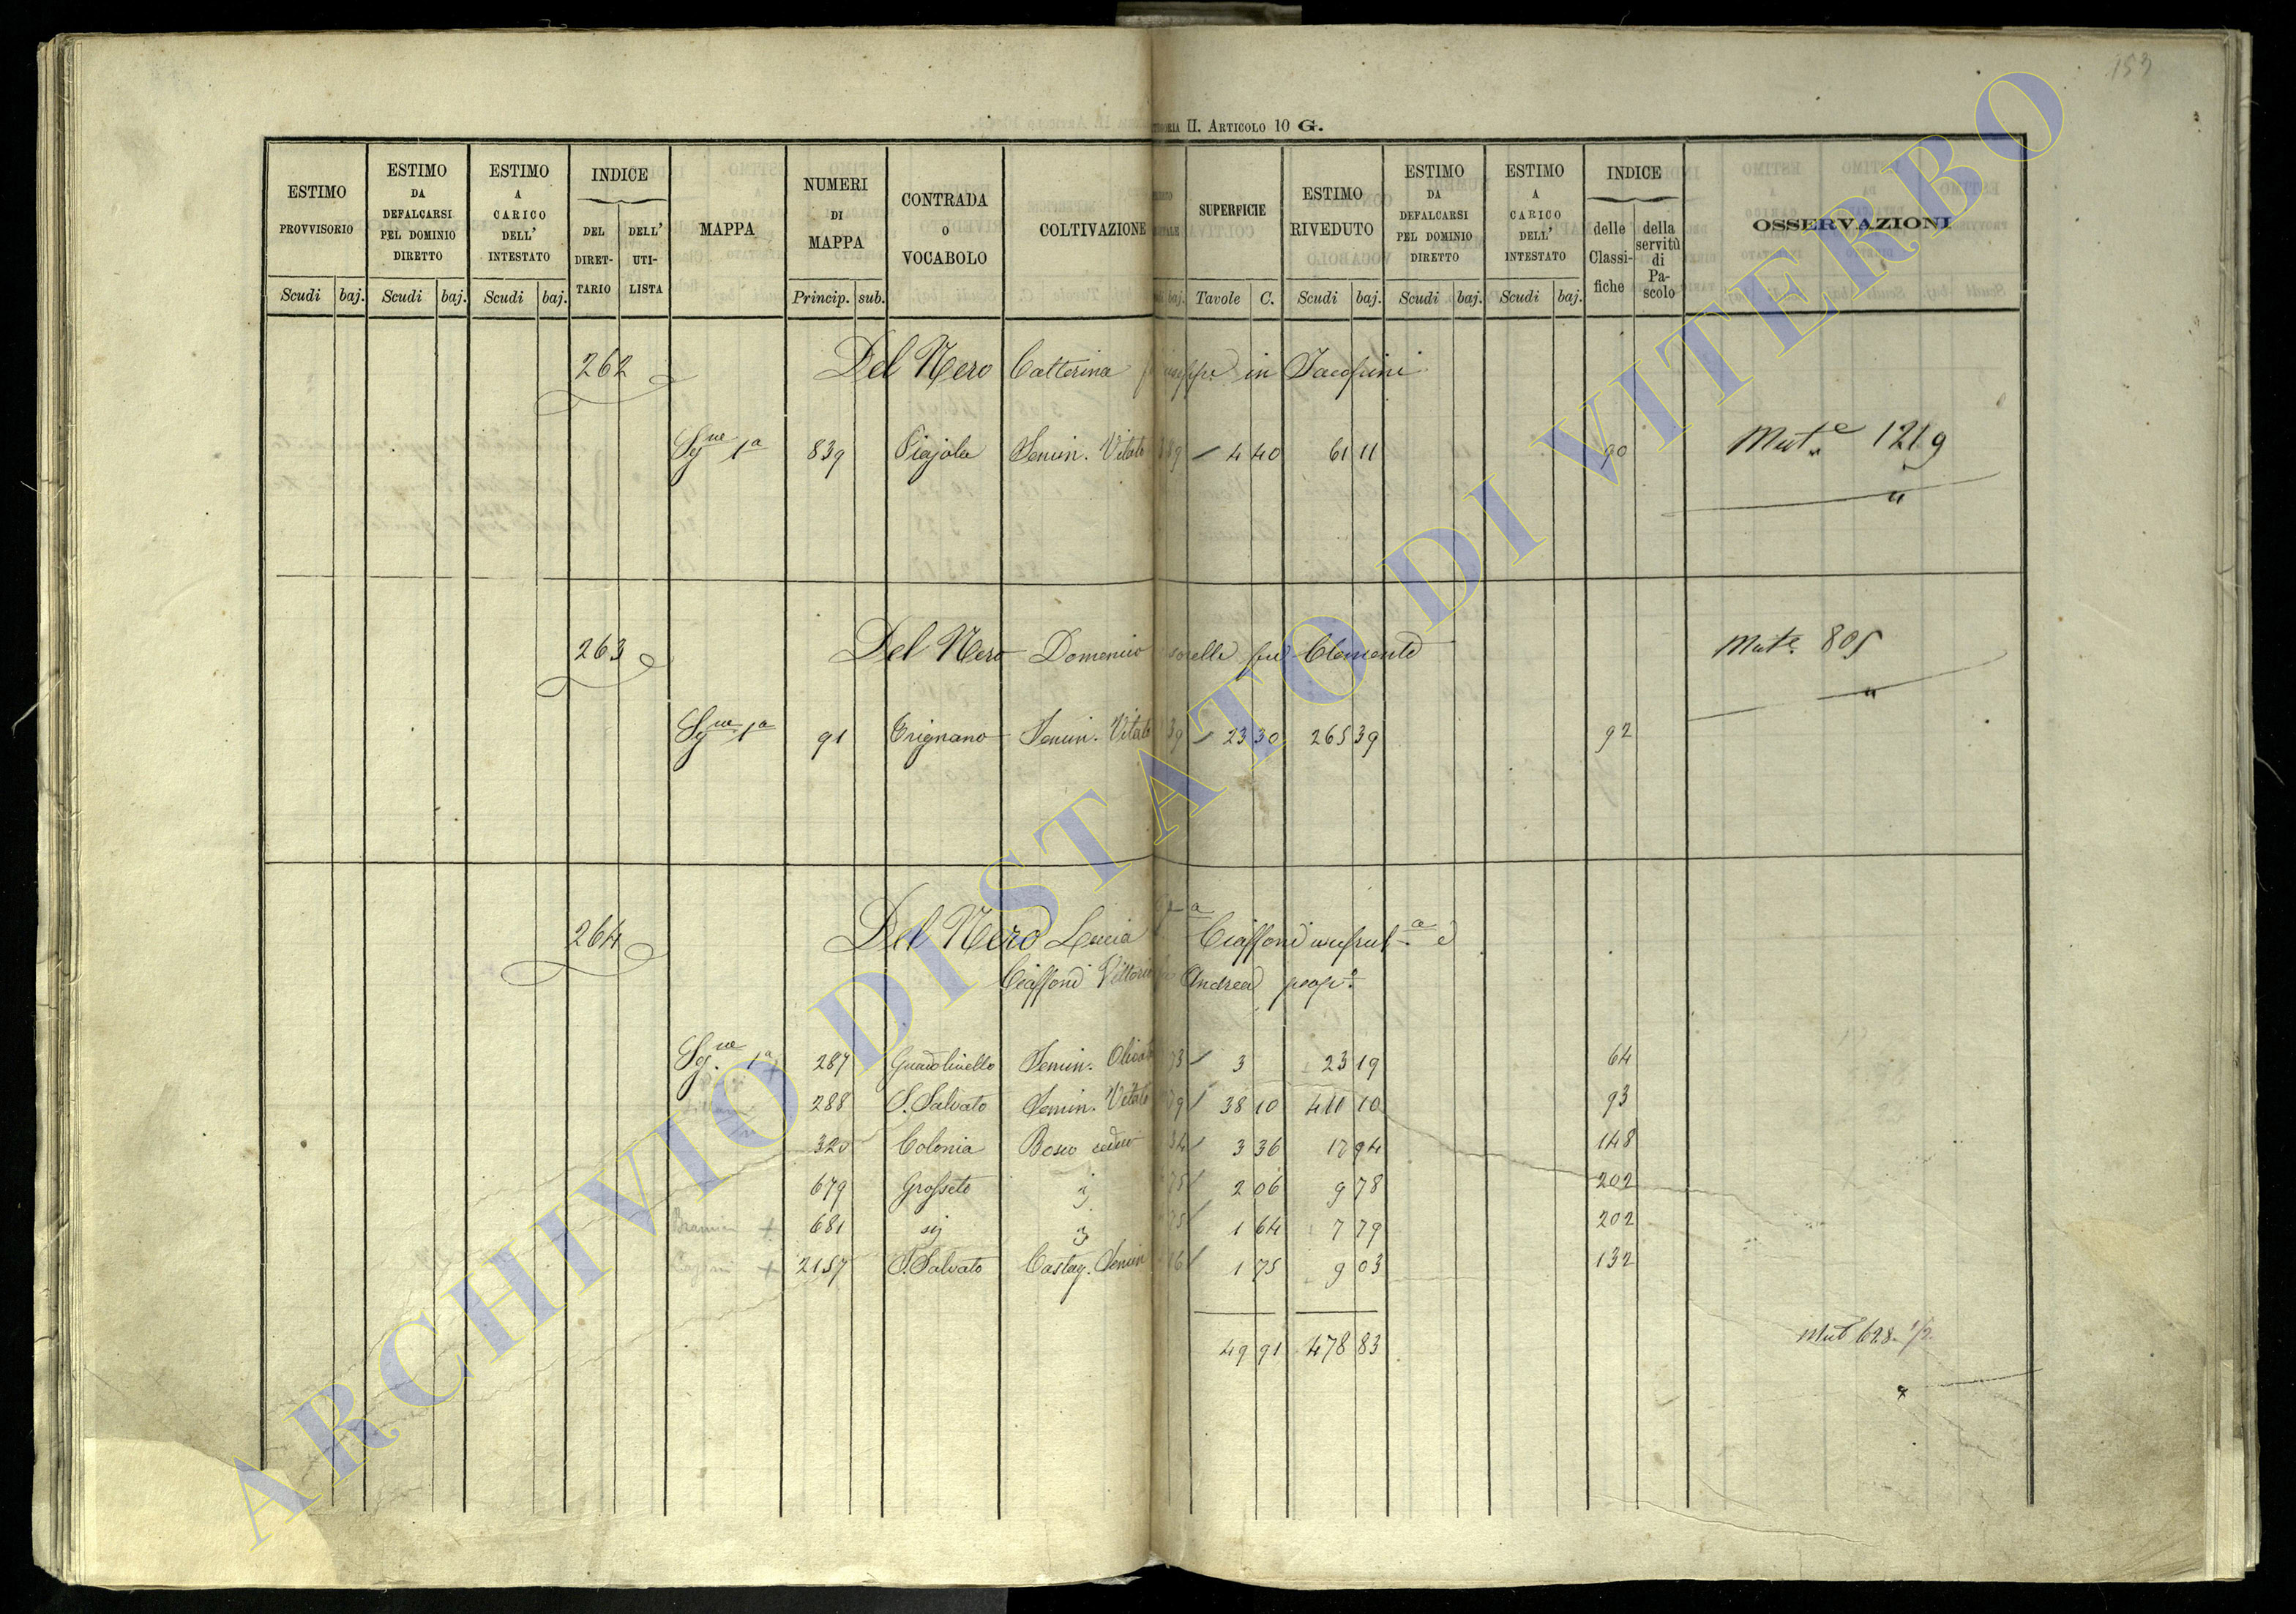 153
II. Articolo 10 G.
ESTIMO PROVVISORIO Scudi baj.
ESTIMO DA DEFALCARSI PEL DOMINIO DIRETTO Scudi baj.
ESTIMO A CARICO DELL' INTESTATO Scudi baj.
INDICE DEL DIRET-TARIO DELL' UTI-LISTA
MAPPA
NUMERI DI MAPPA Princip. sub.
CONTRADA O VOCABOLO
COLTIVAZIONE
baj.
SUPERFICIE Tavole C.
ESTIMO RIVEDUTO Scudi baj.
ESTIMO DA DEFALCARSI PEL DOMINIO DIRETTO Scudi baj.
ESTIMO A CARICO DELL' INTESTATO Scudi baj.
INDICE delle Classi-fiche della servitù di Pa-scolo
OSSERVAZIONI
262 Del Nero Catterina in
Sgne 1a 839 Piajola Semin. Vitato 4 40 61 11 90 Mute 1219
263 Del Nero Domenico sorelle fu Clemente Mute 805
Sgne 1a 91 Grignano Semin. Vitato 23 30 265 39 92
264 Del Nero Lucia Ciaffoni usufruta e
Ciaffoni Vittorio Andrea propo
Sgne 1a 287 Semin. Olivato 3 23 19 64
288 S. Salvato Semin. Vitato 38 10 411 10 93
320 Colonia Bosco ceduo 3 36 17 94 148
679 Grosseto 2 06 9 78 202
681 1 64 7 79 202
2157 S. Salvato Castag. Semin 1 75 9 03 132
49 91 478 83
Mut 628 1/2
ARCHIVIO DI STATO DI VITERBO